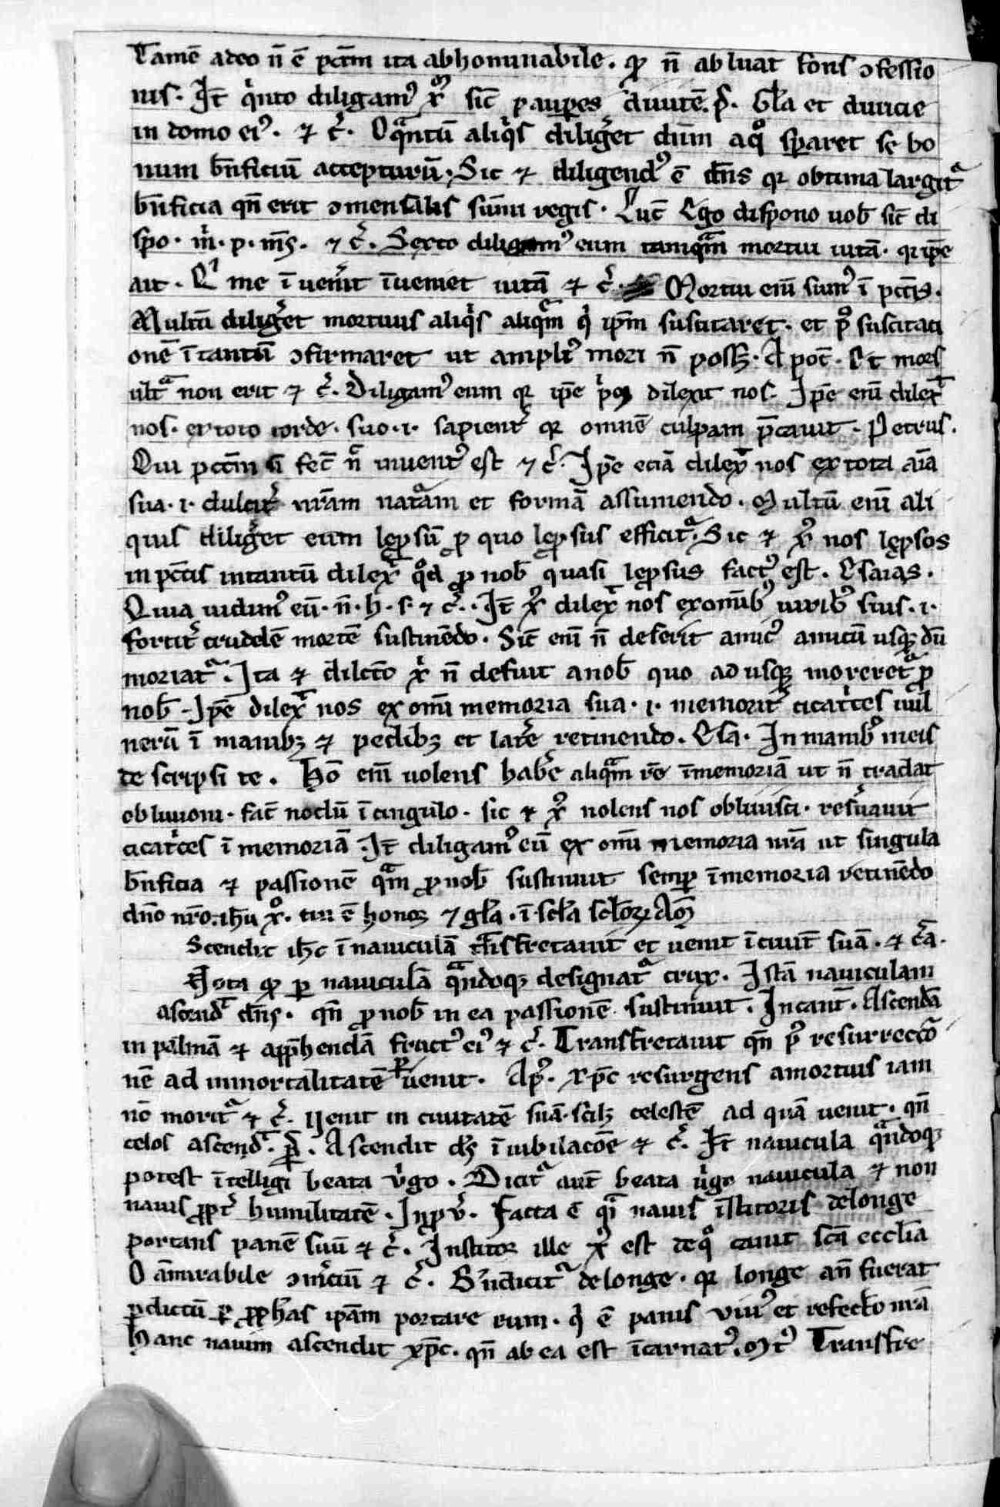 Tamē adeo n̄ ē pctm̄ ita abhominabile. q̄ n̄ abluat fons ꝯfessio
nis. It̄ q̍nto diligamꝰ xp̄m sic̄ pauꝑes diuitē. p̄. Gl̄a et diuicie
in domo eiꝰ. ⁊ c̄. O qͣntū aliq̍s diligͤet diīm a qͦ sꝑaret se bo
num b̄nficiū accepturū. Sic ⁊ diligendꝰ ē dn̄s qꝛ obtima largitͣ
b̄nficia qn̄ erit ꝯmensalis sūmi regis. Luc̄ Ego dispono uob̄ sic̄ di
spo. m̍. p. mꝰ. ⁊ c̄. Sexto diligamꝰ eum tamqͣm mortui uitā. qꝛ ip̄e
ait. Qͥ me īuen̍it īueniet uitā ⁊ c̄. Mortui eniͫ sumꝰ ī pctīs.
Multū diligͤet mortuus aliq̍s aliqͣm q̍ ip̄m suscitaret. et pꝰ suscitaci
onē ītantū ꝯfirmaret ut ampliꝰ mori n̄ posſꝫ. Apoc̄. Et mors
ultͣ non erit ⁊ c̄. Diligamꝰ eum qꝛ ip̄e p̍us dilexit nos. Ip̄e enī dilexͭ
nos. ex toto corde. suo .i. sapient̍ qꝛ omnē culpam p̄cauit. Petrus.
Qui pctm̄ n̄ fec̄ n̄ inuentꝰ est ⁊ c̄. Ip̄e eciā dilexͭ nos ex tota aīa
sua .i. dulcit̍ nrām natͣm et formā assumendo. Multū enī ali
quis diligͤet eum lep̄sū ꝓ quo lep̄sus efficitͣ. Sic ⁊ xp̄s nos lep̄sos
in pctīs intantū dilexͭ qͦd ꝓ nob̄ quasi leprosus factꝰ est. Esaias.
Quia uidimꝰ eū. n̄. h̄. s. ⁊ c̄. It̄ xp̄s dilexͭ nos ex omībꝰ uiribꝰ suis .i.
fortit̍ crudelē mortē sustinēdo. Sic̄ enī n̄ deserit amicꝰ amicū usqꝫ dū
moriatͣ. Ita ⁊ dilectō xp̍ n̄ defuit a nob̄ quo ad usqꝫ moreretͣ ꝓ
nob̄. Ip̄e dilexͭ nos ex omī memoria sua .i. memorit̍ cicat̍ces uul
nerū ī manibꝫ ⁊ pedibꝫ et latͤe retinendo. Esa. In manibꝰ meis
descripsi te. Hō enī uolens habͤe aliqͣm rē īmemoriā ut n̄ tradat
obliuioni. fac̄ nodū ī cingulo. sic ⁊ xp̄s nolens nos obliuisci. res̍uauit
cicat̍ces ī memoriā. It̄ diligamꝰ eū ex omī memoria nr̄a ut singula
b̄nficia ⁊ passionē qͣm ꝓ nob̄ sustinuit semꝑ īmemoria retinēdo
dn̄o nr̄o. ihū xp̄o. cui ē honoꝛ ⁊ gl̄a. ī scl̄a scl̄oꝝ Am̄
Scendit ih̄c ī nauiculā tn̄sfretauit et uenit ī ciuit̄ suā. ⁊ c̄a.
Nota q̄ ꝑ nauiculā qͣndoqꝫ designatͣ crux. Istā nauiculam
ascendͭ dn̄s. qn̄ ꝓ nob̄ in ea passionē sustinuit. In cant̄. Ascendā
in palmā ⁊ app̄hendā fructꝰ eiꝰ ⁊ c̄. Transfretauit qn̄ pꝰ resurrectͦ
nē ad inmortalitatē ꝑuenit. Ap̄. Xp̄c resurgens a mortuis iam
nō moritͣ ⁊ c̄. Uenit in ciuitatē suā. scilꝫ celestē ad quā uenit. qn̄
celos ascendͭ. p̄. Ascendit ds̄ ī iubilacōe ⁊ c̄. It̄ nauicula qͣndoqꝫ
potest ītelligi beata u̍go. Dicitͣ aut̄ beata u̍go nauicula ⁊ non
nauis ꝓpt̍ humilitatē. In ꝓu̍. Facta ē qͣ nauis īstitoris de longe
portans panē suū ⁊ c̄. Institoꝛ ille xp̄s est de qͦ cāuit scā eccl̄ia
O āmirabile ꝯm̍ciū ⁊ c̄. B̄n dicitͣ de longe. qꝛ longe an̄ fuerat
p̄dictū ꝑ ꝓph̄as ip̄am portare eum. q̍ ē panis uiuꝰ et refectō nr̄a
Hanc nauim ascendit xp̄c. qn̄ ab ea est īcarnatꝰ. Transfre